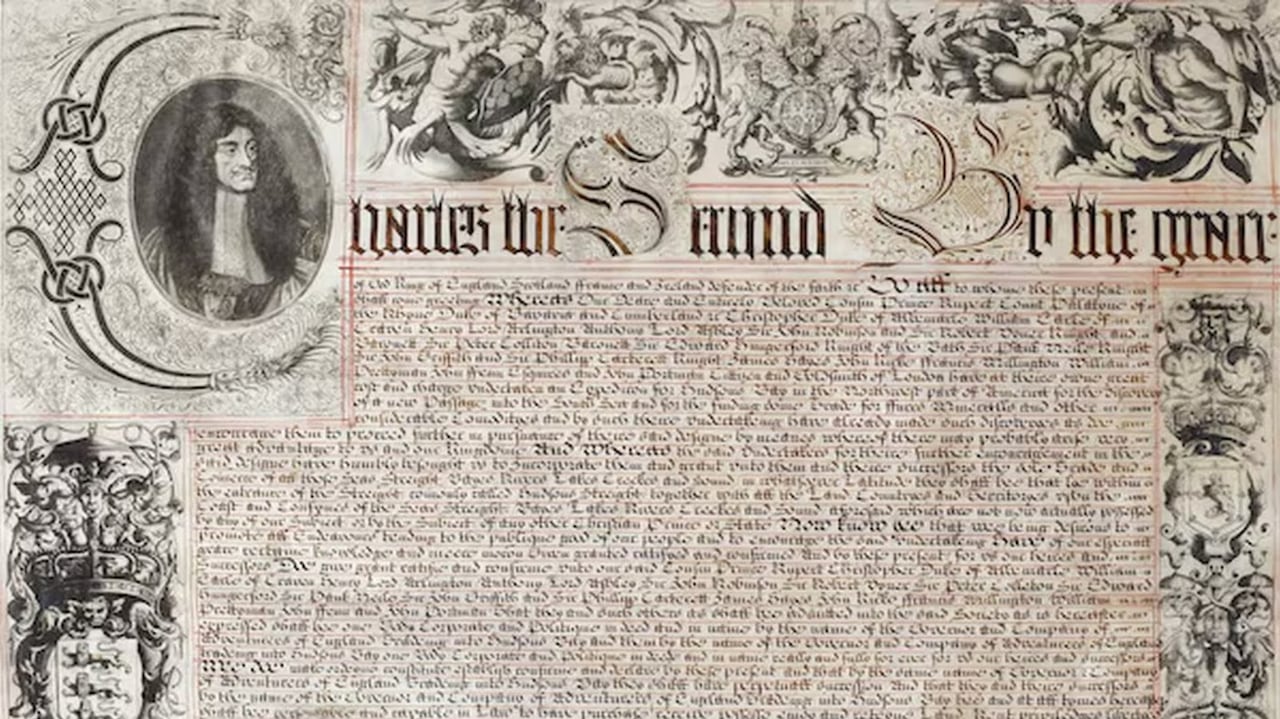 Charles the Second By the grace
of God King of England Scotland ffrance and Ireland defender of the faith &c To All to whome these present
shall come greeting Whereas Our Deare and Entirely Beloved Cousin Prince Rupert Count Palatyne of
the Rhyne Duke of Bavaria and Cumberland &c Christopher Duke of Albemarle William Earle of
Craven Henry Lord Arlington Anthony Lord Ashley Sir John Robinson and Sir Robert Vyner Knight and
Baronett Sir Peter Colliton Baronett Sir Edward Hungerford Knight of the Bath Sir Paul Neele Knight
Sir John Griffith and Sir Phillipp Carterett Knight James Hayes John Kirke ffrancis Millington William
Prettyman John ffenn Esquires and John Portman Cittizen and Goldsmith of London have at theire owne great
cost and charges undertaken an Expedicion for Hudsons Bay in the Northwest part of America for the discovery
of a new Passage into the South Sea and for the finding some Trade for ffurrs Mineralls and other
considerable Comodityes and by such theire undertakeing have already made such discoveryes as doe
encourage them to proceed further in pursuance of theire said designe by meanes whereof there may probably arise very
great advantage to us and our Kingdome And Whereas the said undertakers for theire further encouragement in the
said designe have humbly besought us to Incorporate them and grant unto them and theire successors the sole Trade and
Comerce of all those Seas Streight Bayes Rivers Lakes Creekes and Sound in whatsoever Latitude they shall bee that lye within
the entrance of the Streight comonly called Hudsons Streight together with all the Land Countryes and Territoryes upon the
Coast and Confynes of the Seas Streight Bayes Lakes Rivers Creekes and Sound aforesaid which are not now actually possessed
by any of our Subject or by the Subject of any other Christian Prince or State Now know yee that wee being desirous to
promote all Endeavour tending to the publique good of our people and to encourage the said undertakeing Have of our especiall
grace certaine knowledge and meere mocion Given granted ratifyed and confirmed And by these present for us our heires and
Successors Doe give grant ratifie and confirme unto our said Cousin Prince Rupert Christopher Duke of Albemarle William
Earle of Craven Henry Lord Arlington Anthony Lord Ashley Sir John Robinson Sir Robert Vyner Sir Peter Colleton Sir Edward
Hungerford Sir Paul Neile Sir John Griffith and Sir Phillipp Carterett James Hayes John Kirke ffrancis Millington William
Prettyman John ffenn and John Portman That they and such others as shall bee admitted into the said Society as is hereafter
expressed shall bee one Body Corporate and Politique in deed and in name by the name of the Governor and Company of
Adventurers of England Tradeing into Hudsons Bay and them by the name of the Governor and Company of Adventurers of England
tradeing into Hudsons Bay one Body Corporate and Politique in deede and in name really and fully for ever for us our heires and successors
Wee Doe make ordeyne constitute establish confirme and declare by these present and that by the same name of Governor Company
of Adventurers of England Tradeing into Hudsons Bay they shall have perpetuall succession And that they and theire successors
by the name of the Governor and Company of Adventurers of England Tradeing into Hudsons Bay bee and at all tymes
shall bee and capable in Law to have purchase receive